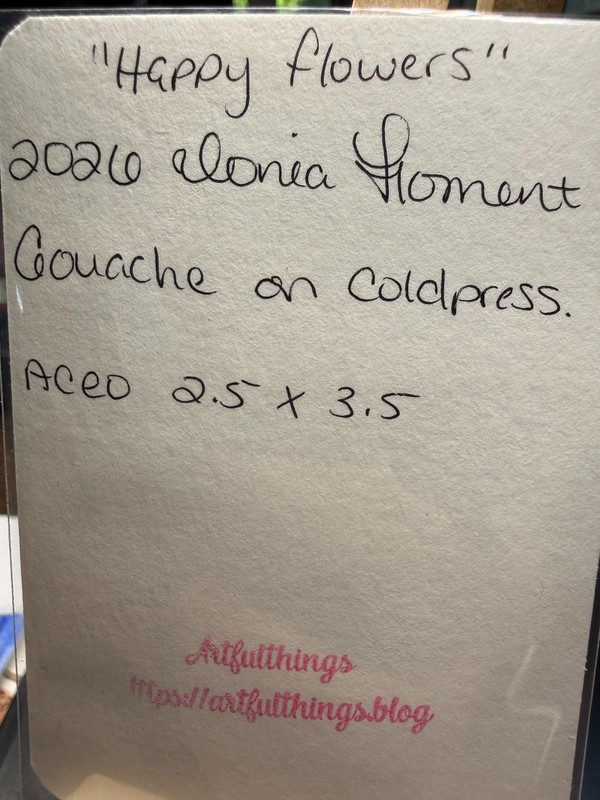 "Happy flowers"
2026 Ilonia Homent
Gouache on Coldpress.
ACEO 2.5 x 3.5
Artfulthings
https://artfulthings.blog